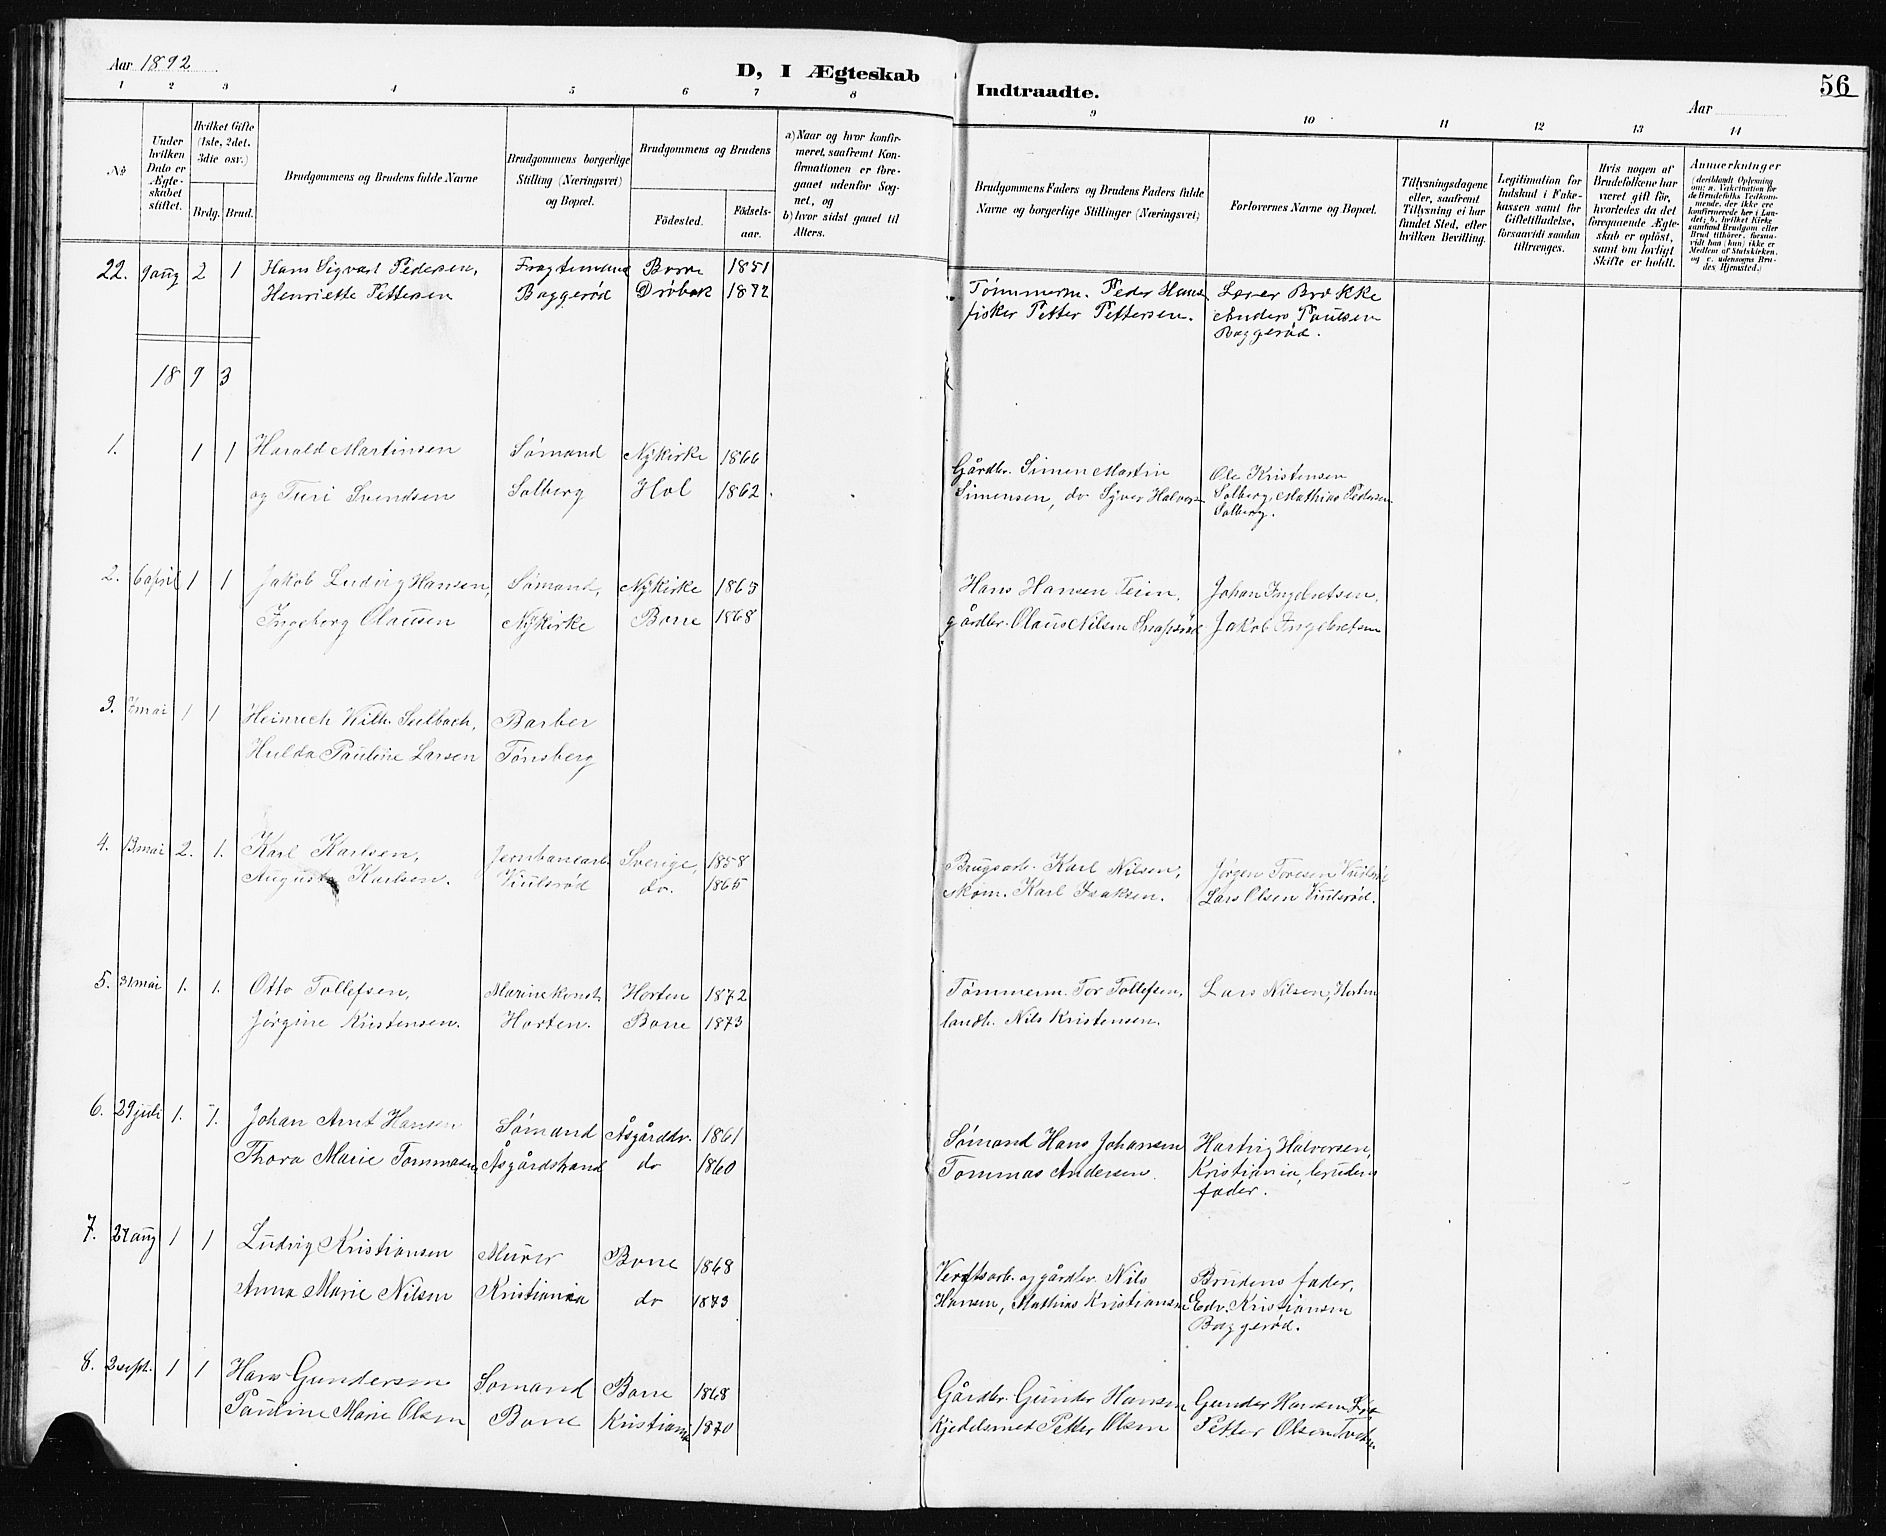 Aar 1892
D, I Ægteskab Indtraadte.
Aar
56
1 2 3 4 5 6 7 8 9 10 11 12 13 14
No
Under hvilken Dato er Ægteskabet stiftet.
Hvilket Gifte (1ste, 2det, 3die osv.)
Brdg. Brud.
Brudgommens og Brudens fulde Navne
Brudgommens borgerlige Stilling (Næringsvei) og Bopæl.
Brudgommens og Brudens
Fødested.
Fødselsaar.
a) Naar og hvor konfirmeret, saafremt Konfirmationen er foregaaet udenfor Sognet, og
b) hvor sidst gaaet til Alters.
Brudgommens Faders og Brudens Faders fulde Navne og borgerlige Stillinger (Næringsvei)
Forlovernes Navne og Bopæl.
Tillysningsdagene eller, saafremt Tillysning ei har fundet Sted, efter hvilken Bevilling.
Legitimation for Indskud i Enkekassen samt for Giftetilladelse, forsaavidt saadan tiltrænges.
Hvis nogen af Brudefolkene har været gift før, hvorledes da det foregaaende Ægteskab er opløst, samt om lovligt Skifte er holdt.
Anmærkninger
22. 9 aug 2 1 Hans Sigvart Pedersen, Fragtemand Borre 1851 Tømmerm. Peder Hans. Lærer Brekke
Henriette Pettersen Baggerød Drøbak 1872 fisker Petter Pettersen. Anders Paulsen
Baggerød.
1893
1. 1 1 Harald Martinsen Sømand Nykirke 1866 Gårdbr. Simen Martin Ole Kristensen
og Turi Svendsen Solberg Hol 1862. Simensen, do Syver Halvorsen Solberg, Mathias Pedersen
Solberg.
2. 6 april 1 1 Jakob Ludvig Hansen, Sømand, Nykirke 1865 Hans Hansen Teien, Johan Ingebretsen,
Ingeborg Clausen Nykirke Borre 1868 gårdbr. Claus Nilsen Jakob Ingebretsen
3. 7 mai 1 1 Heinrich Wilh. Seelbach, Barber
Hulda Pauline Larsen Tønsberg
4. 13 mai 2. 1. Karl Karlsen, Jernbanearb. Sverige, 1858 Brugsarb. Karl Nilsen, Jørgen Toresen Viulsrød
Augusta Karlsen. Viulsrød do. 1865 skom. Karl Isaksen. Lars Olsen Viulsrød.
5. 31 mai 1. 1. Otto Tollefsen, Marinekonst. Horten 1872 Tømmerm. Tor Tollefsen, Lars Nilsen, Horten
Jørgine Kristensen. Horten. Borre 1873 landh. Nils Kristensen.
6. 29 juli 1. 1. Johan Arnt Hansen Sømand Åsgårdstr. 1861 Sømand Hans Johansen Hartvig Halvorsen,
Thora Marie Tommasen Åsgårdstrand do 1860 Tommas Andersen. Kristiania, brudens
fader.
7. 27 aug 1 1 Ludvig Kristiansen Murer Borre 1868 Verftsarb. og gårdbr. Nils Brudens fader,
Anna Marie Nilsen Kristiania do 1873 Hansen, Mathias Kristiansen Edv. Kristiansen
Baggerød.
8. 2 sept. 1 1 Hans Gundersen Sømand Borre 1868 Gårdbr. Gunder Hansen Gunder Hansen
Pauline Marie Olsen Borre Kristiania 1870 Kjedelsmed Petter Olsen Petter Olsen